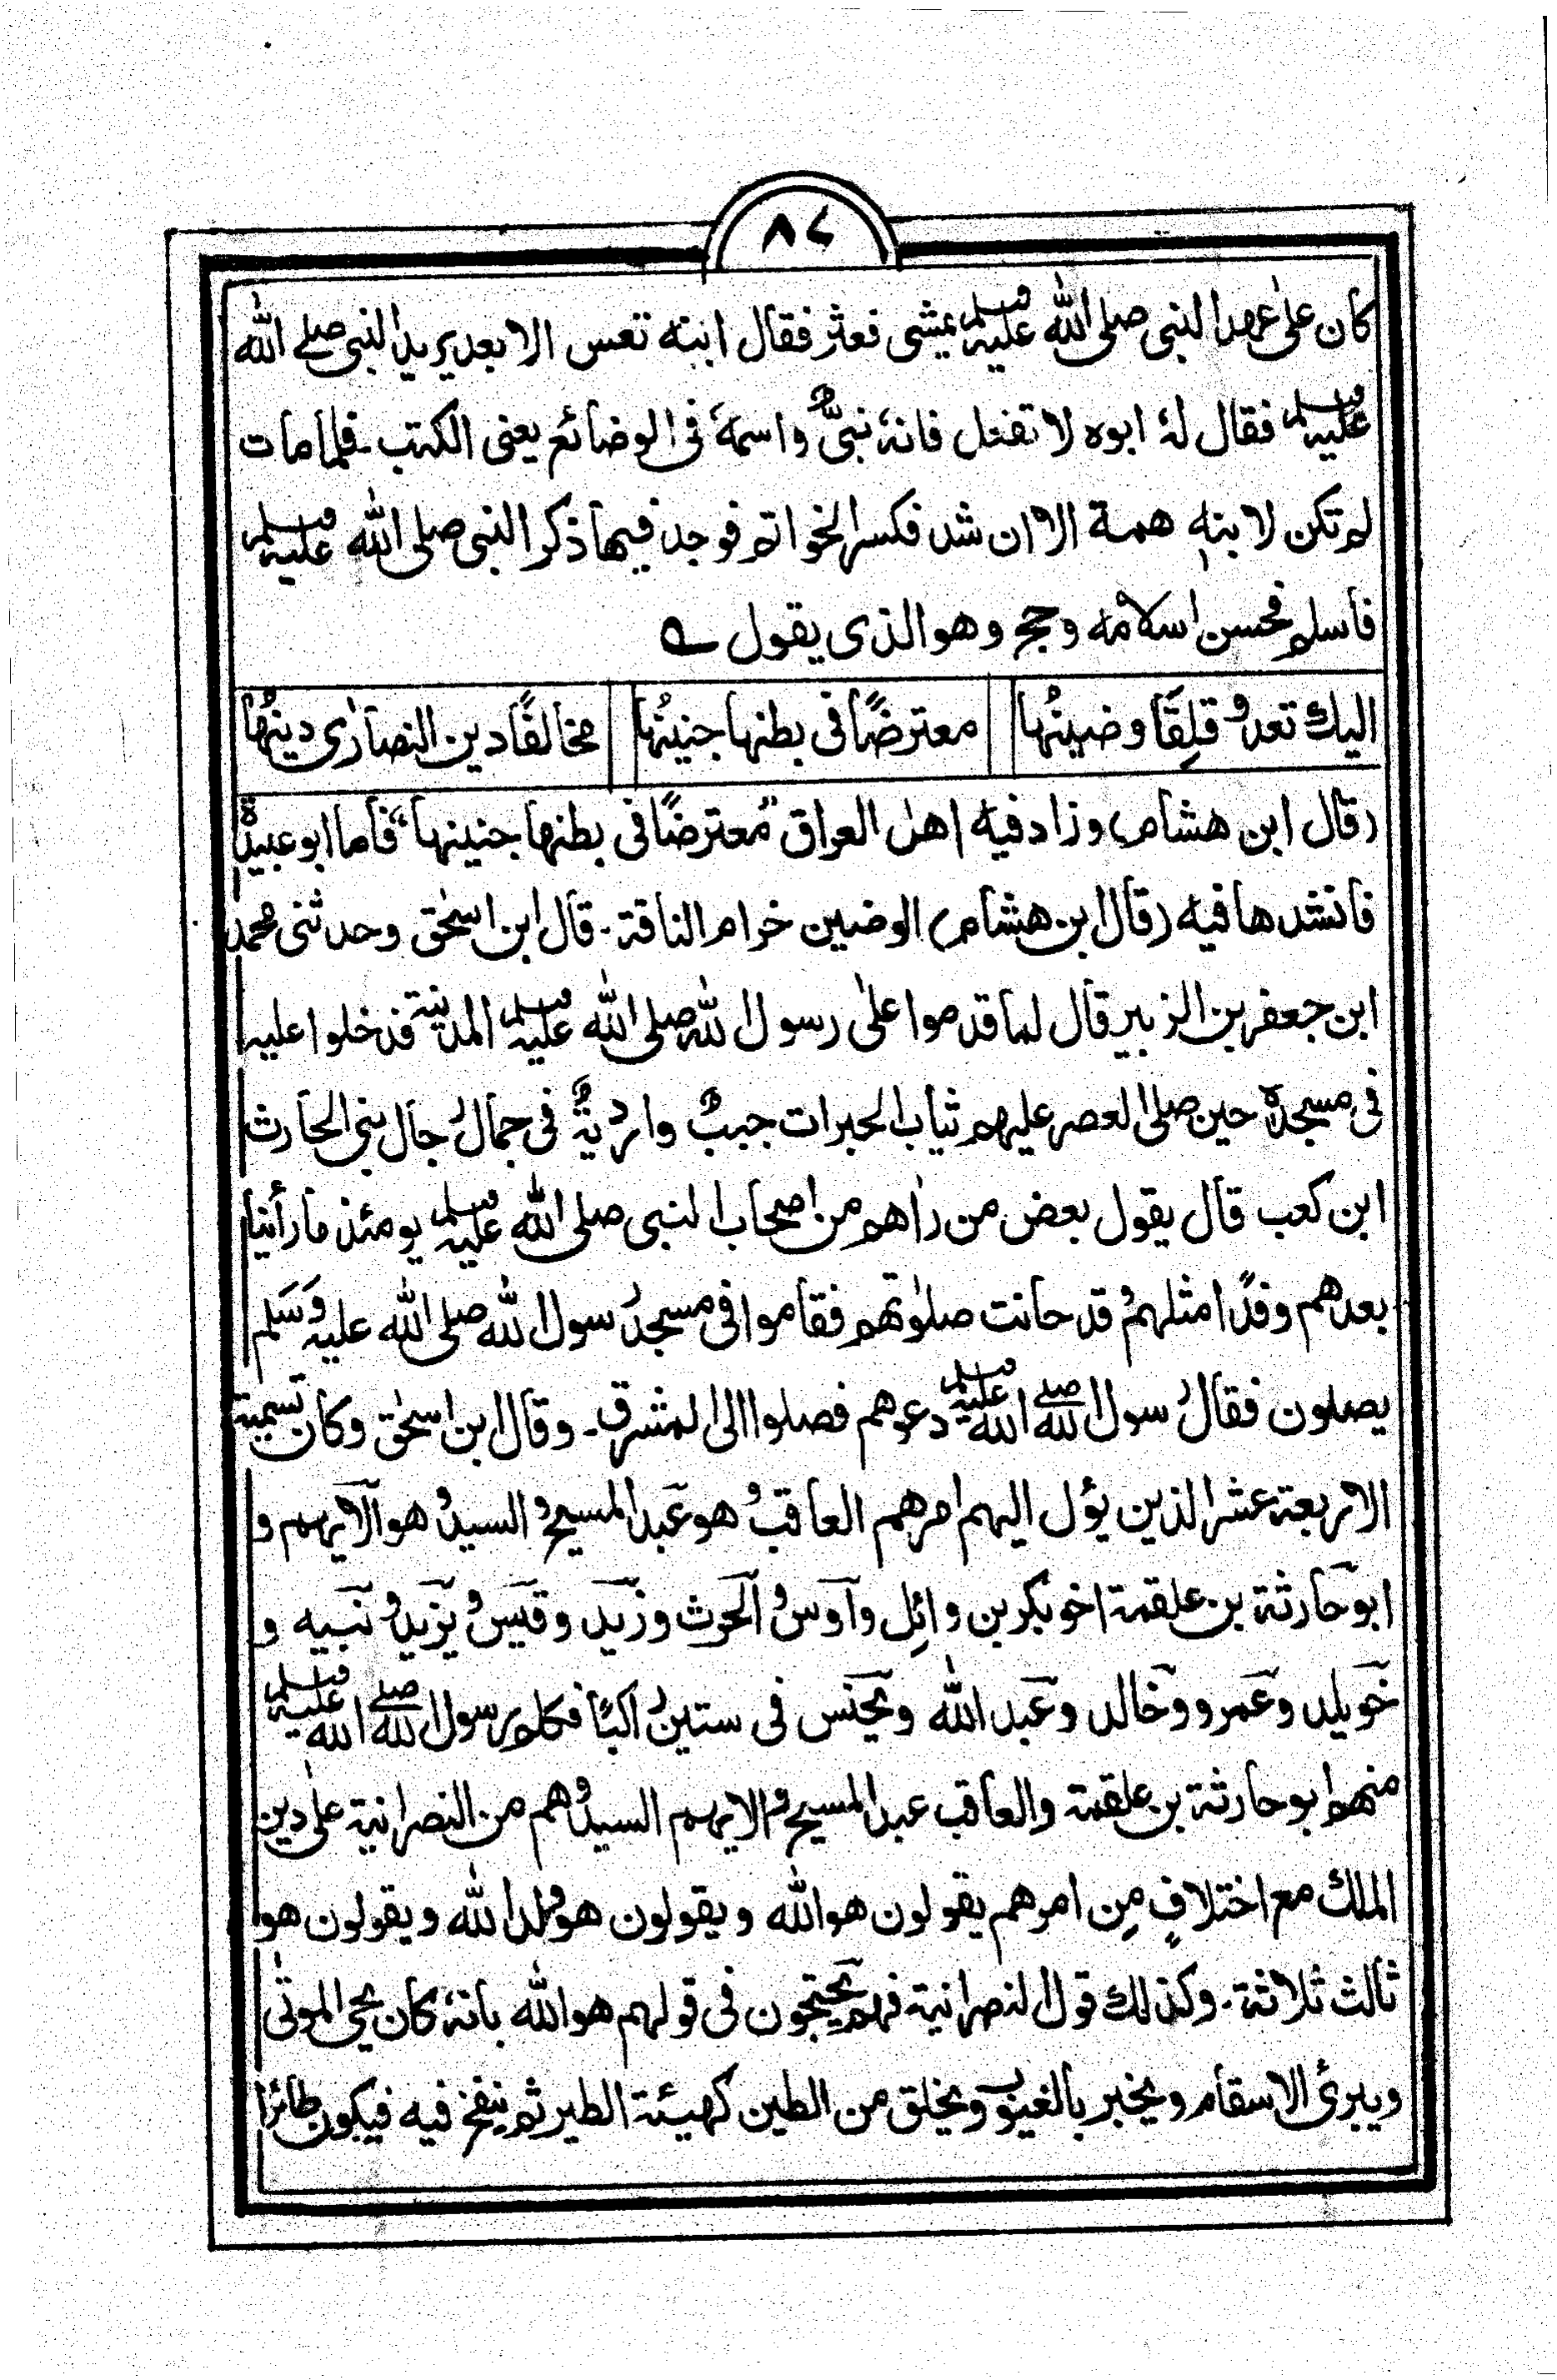 ٨٧
كان على عهد النبى صلى الله عليه وسلم يمشى فعثر فقال ابنه تعس الابعد يريد النبى صلى الله
عليه وسلم فقال لهٗ ابوه لا تفعل فانهٗ نبىٌّ واسمهٗ فى الوضائع يعنى الكتب۔ فلما مات
لم تكن لابنهٖ همة الا ان شد فكسر الخواتم فوجد فيها ذكر النبى صلى الله عليه وسلم
فأسلم فحسن اسلامه وحج وهو الذى يقول ؎
اليك تعدو قلِقًا وضينُها | معترضًا فى بطنها جنينُها | مخالفًا دين النصارٰى دينُها
(قال ابن هشام) وزاد فيه اهل العراق ”معترضًا فى بطنها جنينها“ فأما ابو عبيدة
فأنشدها فيه (قال ابن هشام) الوضين خرام الناقة۔ قال ابن اسحٰق وحدثنى محمد
ابن جعفر بن الزبير قال لما قدموا علىٰ رسول الله صلى الله عليه وسلم المدينة فدخلوا عليه
فى مسجدهٖ حين صلى العصر عليهم ثياب الحبرات جببٌ واردیةٌ فى جمال رجال بنى الحارث
ابن كعب قال يقول بعض من راٰهم من اصحاب النبى صلى الله عليه وسلم يومئذ ما رأينا
بعدهم وفدًا مثلهم و قد حانت صلوٰتهم فقاموا فى مسجد رسول الله صلى الله عليه وَسَلم
يصلون فقال رسول الله صلے الله عليه وسلم دعوهم فصلوا الى المشرق۔ وقال ابن اسحٰق وكان تسمية
الاربعة عشر الذين يؤل اليهم امرهم العاقب و هو عبد المسيح و السيد و هو الايهم و
ابو حارثة بن علقمة اخو بكر بن وائِل واوس و الحرث وزيد وقيس و يزيد و نبيه و
خويلد وعمرو وخالد وعبد الله ويحنس فى ستين راكبًا فكلم رسول الله صلے الله عليه وسلم
منهم ابو حارثة بن علقمة والعاقب عبد المسيح و الايهم السيد و هم من النصرانية على دين
الملك مع اختلافٍ مِن امرهم يقولون هو الله ويقولون هو ولد الله ويقولون هو
ثالث ثلاثة۔ وكذلك قول النصرانية فهم يحتجون فى قولهم هو الله بانهٗ كان يحى الموتٰى
ويبرئ الاسقام ويخبر بالغيوب ويخلق من الطين كهيئة الطير ثم ينفخ فيه فيكون طائرًا